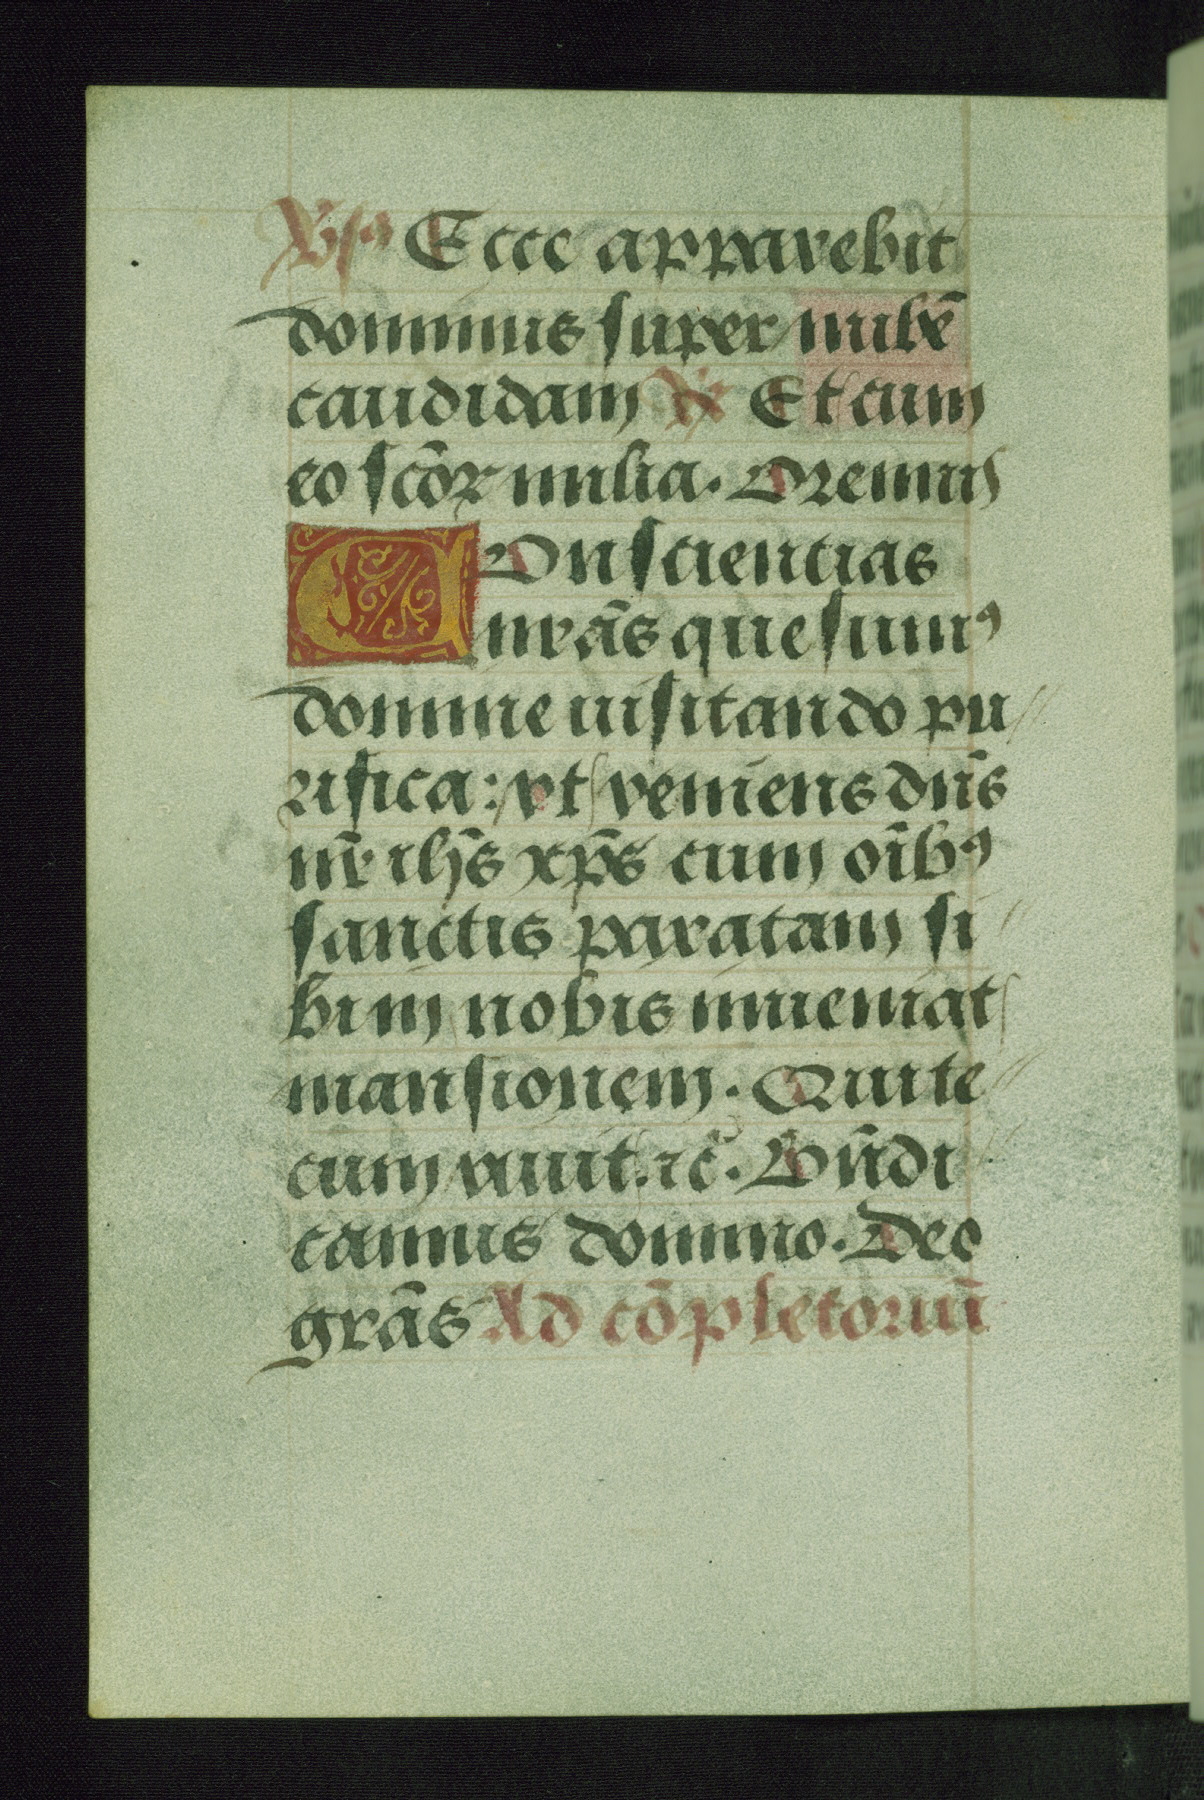 Vs⁹ Ecce apparebit
dominus super nubē
candidam ℟ Et cum
eo scōr milia. Oremus
COnscientias
nrās quesum⁹
domine uisitando pu
rifica: vt veniens dn̄s
nr̄ ihs̄ xp̄s cum oīb⁹
sanctis paratam si
bi in nobis inueniat
mansionem. Qui te
cum viuit. ⁊c̄. Bn̄di
camus domino. Deo
grās Ad cōpletoriū